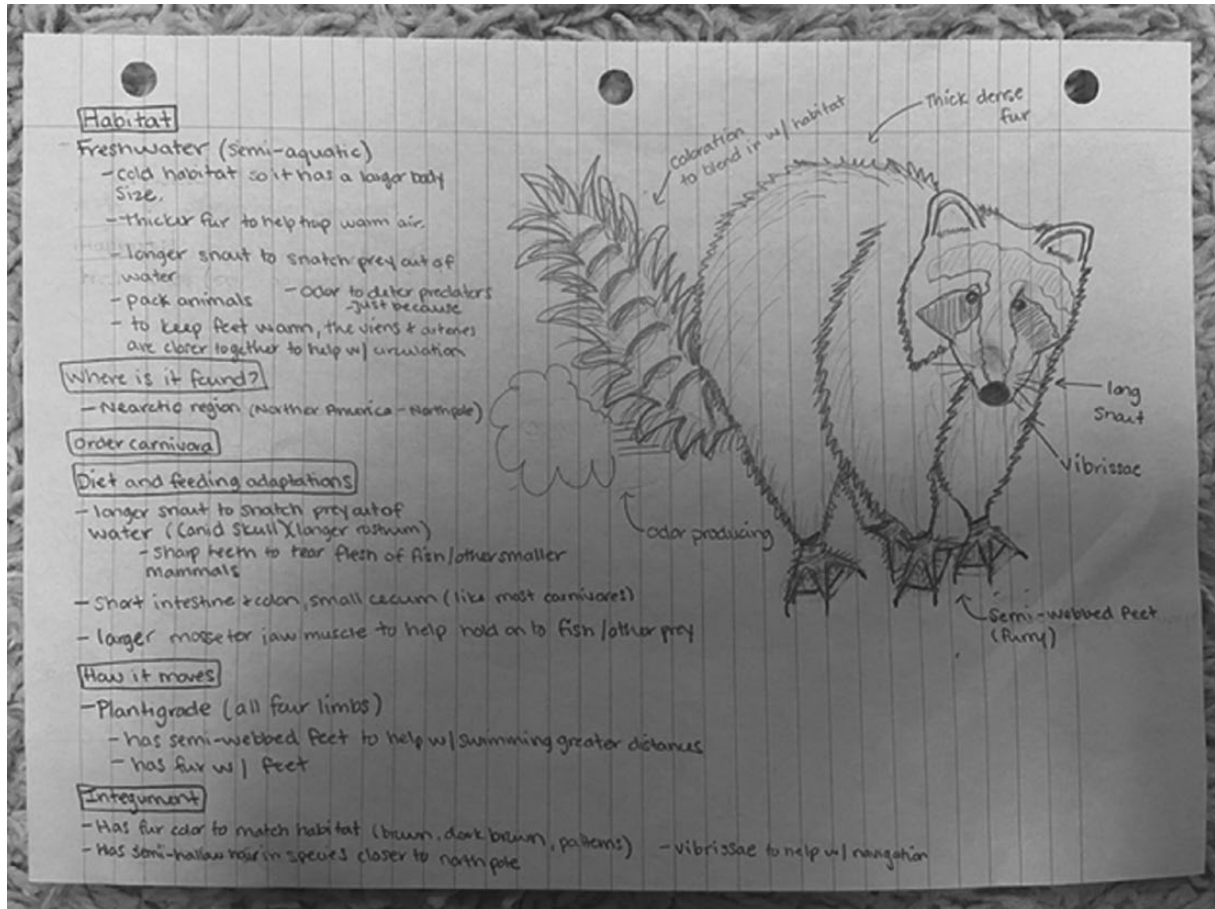 Habitat
Freshwater (semi-aquatic)
- cold habitat so it has a larger body
size.
- thicker fur to help trap warm air.
- longer snout to snatch prey out of
water
- pack animals - odor to deter predators
- just because
- to keep feet warm, the viens & arteries
are closer together to help w/ circulation
Where is it found?
- Nearctic region (Norther America - Northpole)
Order carnivora
Diet and feeding adaptations
- longer snout to snatch prey out of
water (Canid skull)(larger rostrum)
- sharp teeth to tear flesh of fish/other smaller
mammals
- Short intestine & colon, small cecum (like most carnivores)
- larger masseter jaw muscle to help hold on to fish/other prey
How it moves
- Plantigrade (all four limbs)
- has semi-webbed feet to help w/ swimming greater distances
- has fur w/ feet
Integument
- Has fur color to match habitat (brown, dark brown, patterns) - vibrissae to help w/ navigation
- Has semi-hallow hair in species closer to north pole
coloration
to blend in w/ habitat
Thick dense
fur
long
snout
vibrissae
odor producing
Semi-webbed feet
(furry)